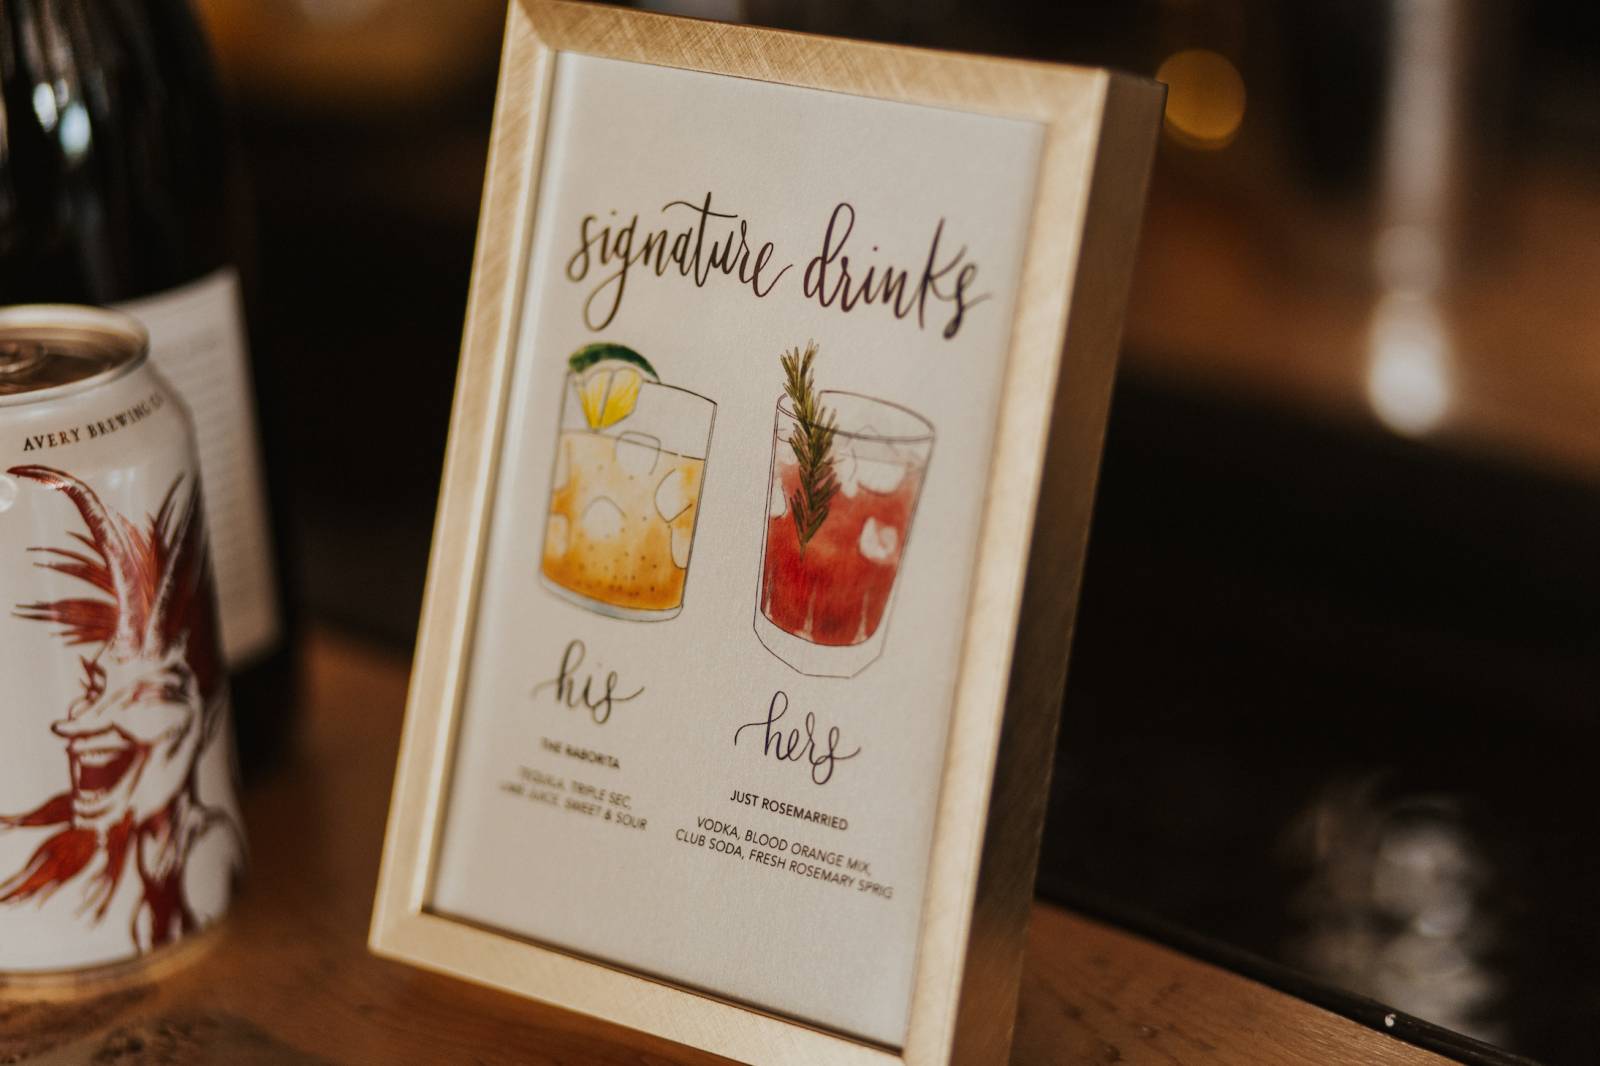 AVERY BREWING CO
signature drinks
his
THE RABORITA
TEQUILA, TRIPLE SEC,
LIME JUICE, SWEET & SOUR
hers
JUST ROSEMARRIED
VODKA, BLOOD ORANGE MIX,
CLUB SODA, FRESH ROSEMARY SPRIG